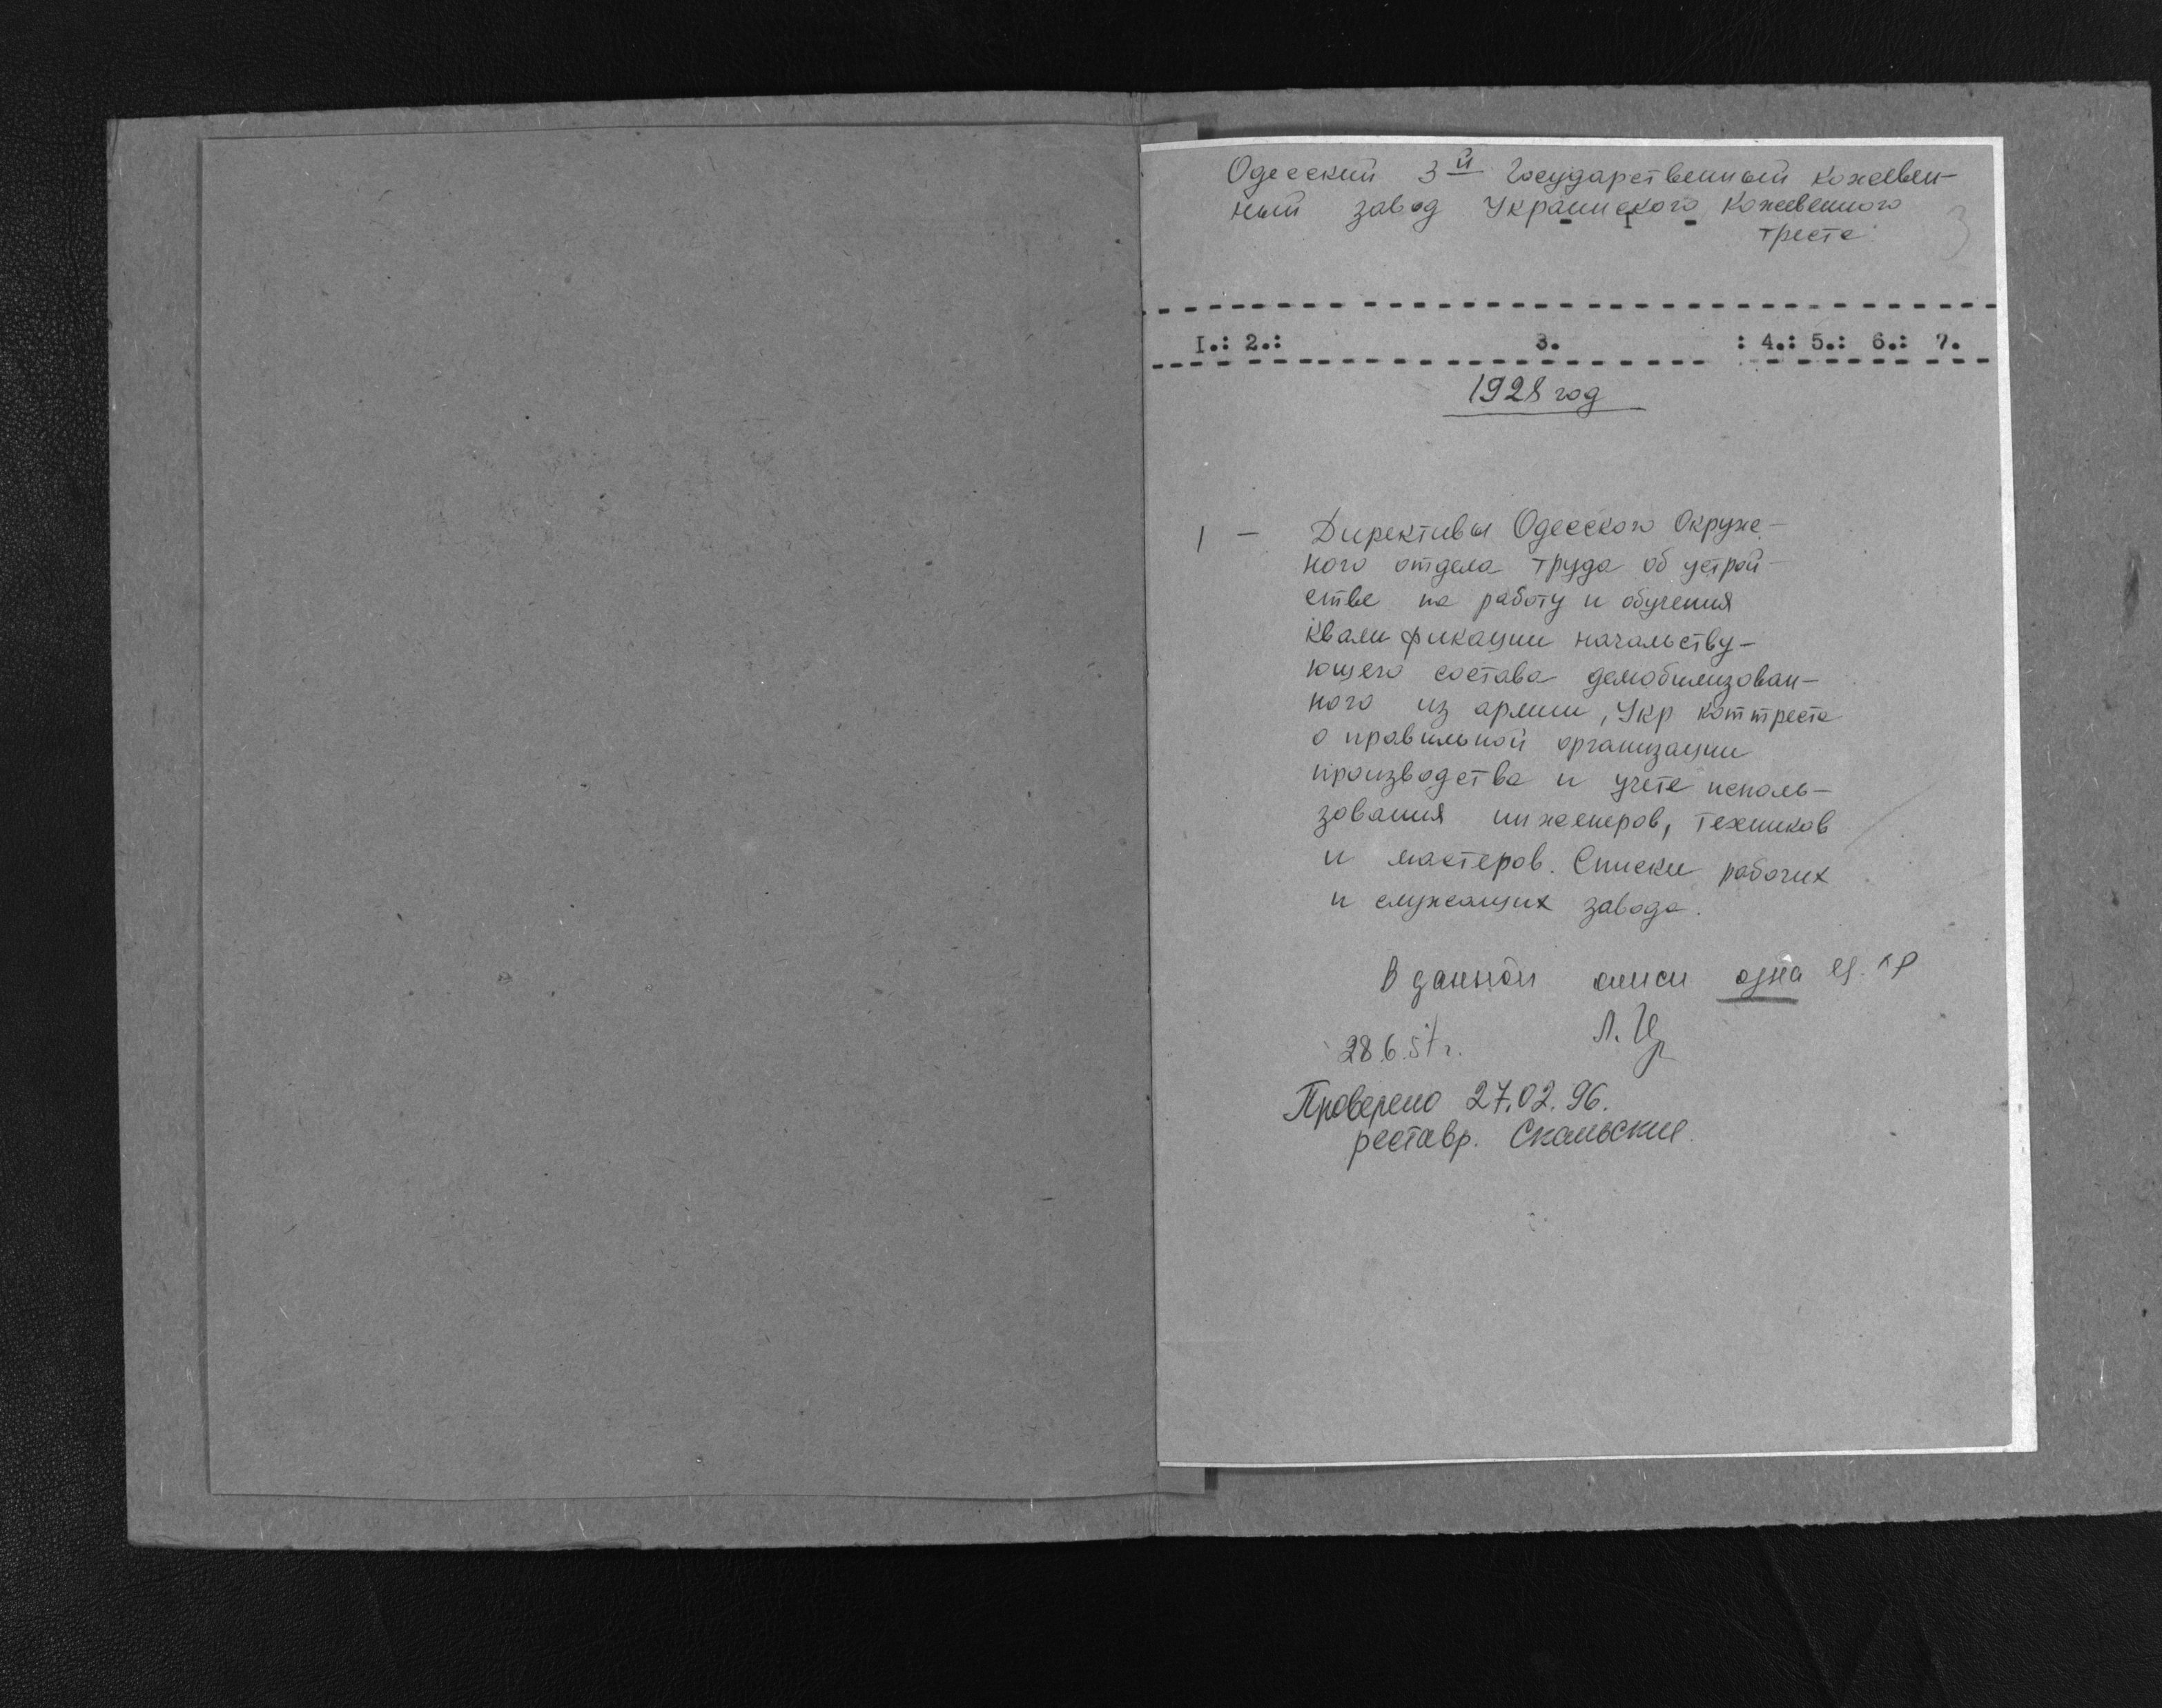 Одесский 3й Государственный кожевен-
ный завод Украинского Кожевенного
треста
3
- I -
I.: 2.: 3. : 4.: 5.: 6.: 7.
1928 год
1 - Директивы Одесского Окруж-
ного отдела труда об устрой-
стве на работу и обучения
квалификации начальству-
ющего состава демобилизован-
ного из армии, Укр
о правильной организации
производства и учете исполь-
зования инженеров, техников
и мастеров. Списки рабочих
и служащих завода.
В данной описи одна ед. хр
28.6.57 г. Л.
Проверено 27.02.96.
реставр.